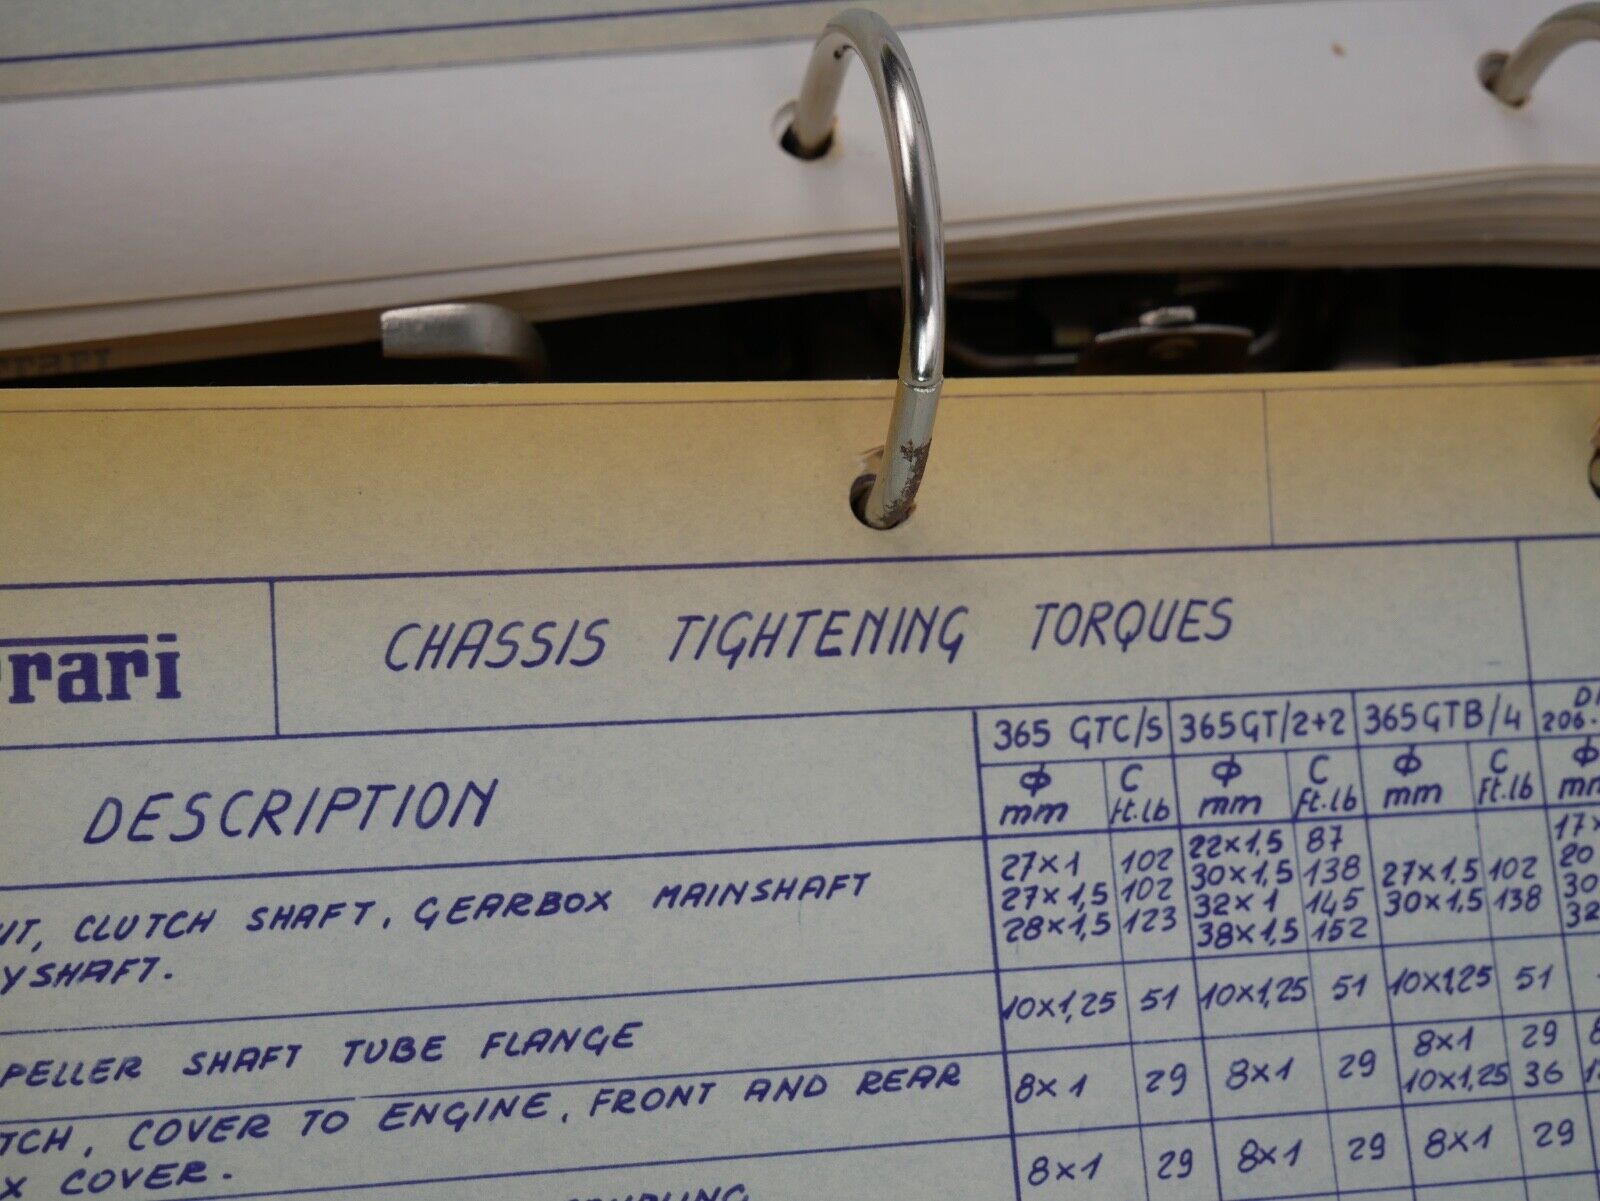 rrari CHASSIS TIGHTENING TORQUES
365 GTC/S 365GT/2+2 365GTB/4 206.
DESCRIPTION ϕ mm C Ft.lb ϕ mm C Ft.lb ϕ mm C Ft.lb ϕ
UT, CLUTCH SHAFT, GEARBOX MAINSHAFT
YSHAFT.
27×1 102 22×1,5 87 17×
27×1,5 102 30×1,5 138 27×1,5 102 20
28×1,5 123 32×1 145 30×1,5 138 30
38×1,5 152 32
PELLER SHAFT TUBE FLANGE 10×1,25 51 10×1,25 51 10×1,25 51
TCH, COVER TO ENGINE, FRONT AND REAR 8×1 29 8×1 29 8×1 29
X COVER. 10×1,25 36
8×1 29 8×1 29 8×1 29